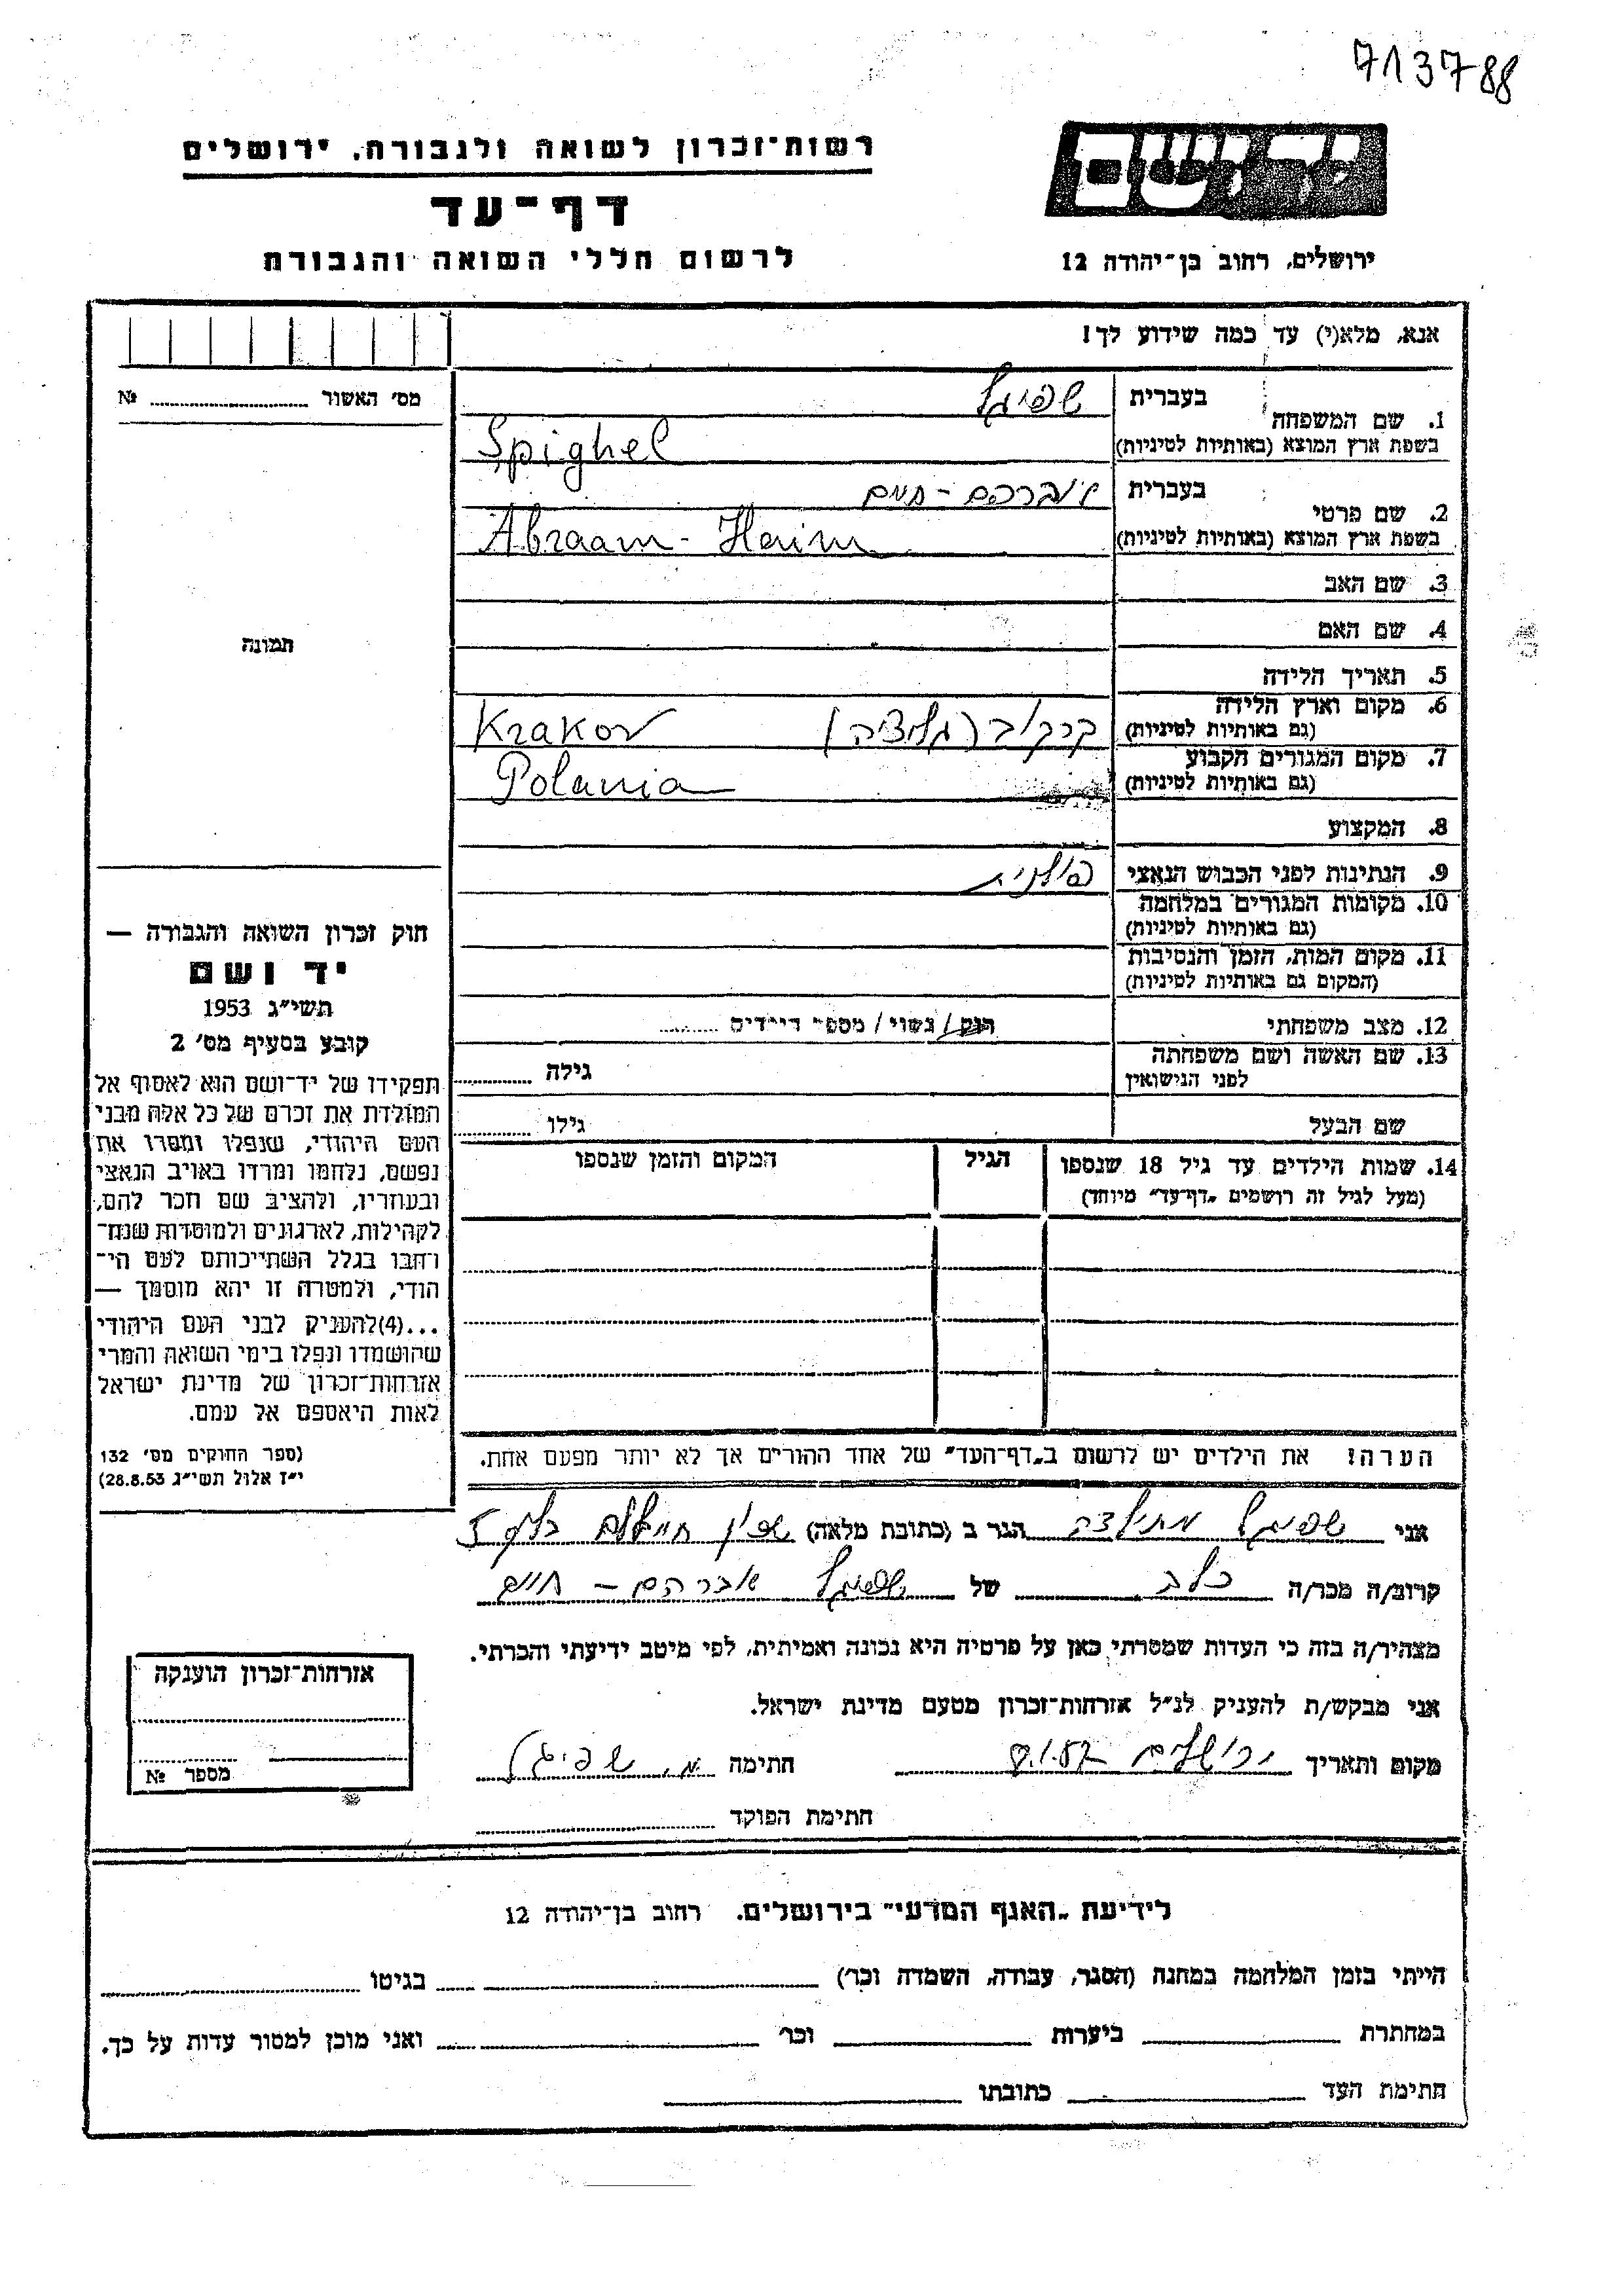 713788
יד ושם
ירושלים, רחוב בן־יהודה 12
רשות־זכרון לשואה ולגבורה, ירושלים
דף־עד
לרשום חללי השואה והגבורה
אנא, מלא(י) עד כמה שידוע לך!
1. שם המשפחה
בעברית שפיגל
בשפת ארץ המוצא (באותיות לטיניות) Spighel
2. שם פרטי
בעברית אברהם - חיים
בשפת ארץ המוצא (באותיות לטיניות) Abraam - Haim
3. שם האב
4. שם האם
5. תאריך הלידה
6. מקום וארץ הלידה
(גם באותיות לטיניות) קרקוב (גליציה) Krakov
7. מקום המגורים הקבוע
(גם באותיות לטיניות) Polania
8. המקצוע
9. הנתינות לפני הכבוש הנאצי פולנית
10. מקומות המגורים במלחמה
(גם באותיות לטיניות)
11. מקום המות, הזמן והנסיבות
(המקום גם באותיות לטיניות)
12. מצב משפחתי רוק/ נשוי/ מספר הילדים ........
13. שם האשה ושם משפחתה גילה ..........
לפני הנישואין
שם הבעל גילו ..........
14. שמות הילדים עד גיל 18 שנספו הגיל המקום והזמן שנספו
(מעל לגיל זה רושמים „דף־עד״ מיוחד)
הערה! את הילדים יש לרשום ב„דף־העד״ של אחד ההורים אך לא יותר מפעם אחת.
מס׳ האשור .......... №
תמונה
חוק זכרון השואה והגבורה —
יד ושם
תשי״ג 1953
קובע בסעיף מס׳ 2
תפקידו של יד־ושם הוא לאסוף אל
המולדת את זכרם של כל אלה מבני
העם היהודי, שנפלו ומסרו את
נפשם, נלחמו ומרדו באויב הנאצי
ובעוזריו, ולהציב שם וזכר להם,
לקהילות, לארגונים ולמוסדות שנח־
רבו בגלל השתייכותם לעם הי־
הודי, ולמטרה זו יהא מוסמך —
...(4)להעניק לבני העם היהודי
שהושמדו ונפלו בימי השואה והמרי
אזרחות־זכרון של מדינת ישראל
לאות היאספם אל עמם.
(ספר החוקים מס׳ 132
י״ז אלול תשי״ג 28.8.53)
אני שפיגל מתילדה הגר ב (כתובת מלאה)
קרוב/ה מכר/ה של שפיגל אברהם - חיים
מצהיר/ה בזה כי העדות שמסרתי כאן על פרטיה היא נכונה ואמיתית, לפי מיטב ידיעתי והכרתי.
אני מבקש/ת להעניק לנ״ל אזרחות־זכרון מטעם מדינת ישראל.
מקום ותאריך ירושלים חתימה מ. שפיגל
חתימת הפוקד
אזרחות־זכרון הוענקה
מספר №
לידיעת „האגף המדעי״ בירושלים. רחוב בן־יהודה 12
הייתי בזמן המלחמה במחנה (הסגר, עבודה, השמדה וכר׳) בגיטו
במחתרת ביערות וכר׳ ואני מוכן למסור עדות על כך.
חתימת העד כתובתו